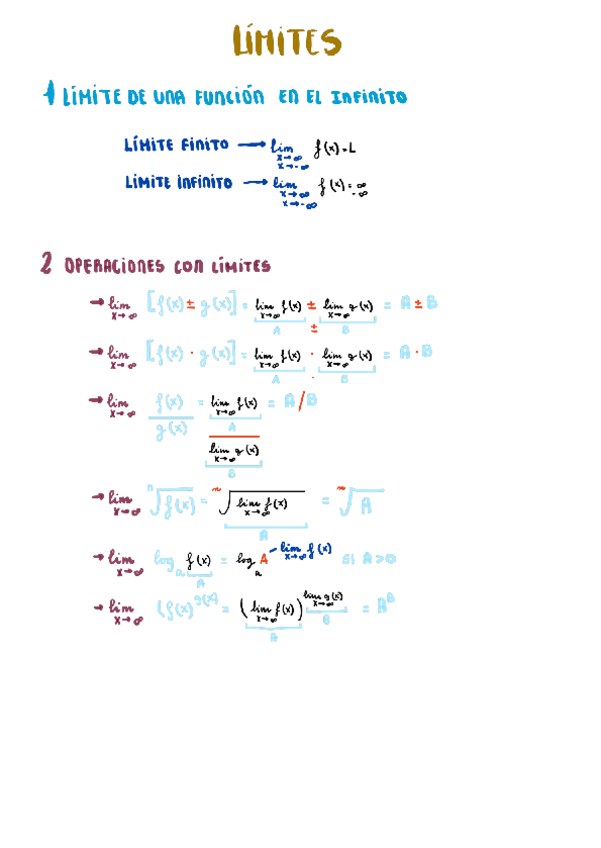 LÍMITES
1 LÍMITE DE UNA FUNCIÓN EN EL INFINITO
LÍMITE FINITO → lim x→∞ x→-∞ f(x)=L
LÍMITE INFINITO → lim x→∞ x→-∞ f(x)=∞ -∞
2 OPERACIONES CON LÍMITES
→ lim x→∞ [f(x) ± g(x)] = lim x→∞ f(x) ± lim x→∞ g(x) = A ± B
A ± B
→ lim x→∞ [f(x) · g(x)] = lim x→∞ f(x) · lim x→∞ g(x) = A · B
A · B
→ lim x→∞ f(x) / g(x) = lim x→∞ f(x) = A/B
A
lim x→∞ g(x)
B
→ lim x→∞ ⁿ√f(x) = ⁿ√lim x→∞ f(x) = ⁿ√A
A
→ lim x→∞ log a f(x) = log a A lim x→∞ f(x) si A>0
A
→ lim x→∞ (f(x)^g(x) = (lim x→∞ f(x))^lim x→∞ g(x) = A^B
A B